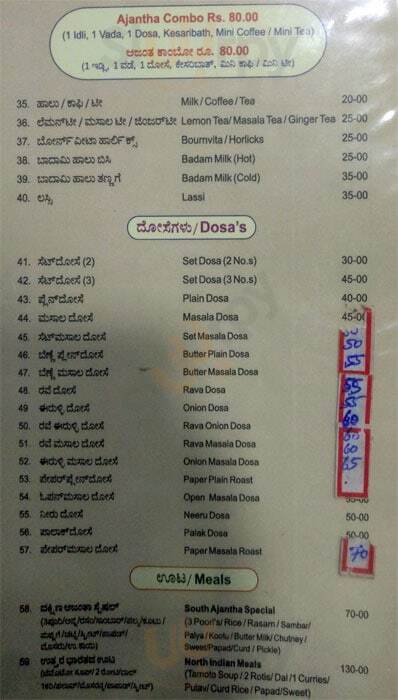 Ajantha Combo Rs. 80.00
(1 Idli, 1 Vada, 1 Dosa, Kesaribath, Mini Coffee / Mini Tea)
ಅಜಂತ ಕಾಂಬೋ ರೂ. 80.00
(1 ಇಡ್ಲಿ, 1 ವಡೆ, 1 ದೋಸೆ, ಕೇಸರಿಬಾತ್, ಮಿನಿ ಕಾಫಿ / ಮಿನಿ ಟೀ)
35. ಹಾಲು / ಕಾಫಿ / ಟೀ Milk / Coffee / Tea 20-00
36. ಲೆಮನ್‌ಟೀ / ಮಸಾಲ ಟೀ / ಜಿಂಜರ್‌ಟೀ Lemon Tea/ Masala Tea / Ginger Tea 25-00
37. ಬೋರ್ನ್‌ವೀಟಾ ಹಾರ್ಲಿಕ್ಸ್ Bournvita / Horlicks 25-00
38. ಬಾದಾಮಿ ಹಾಲು ಬಿಸಿ Badam Milk (Hot) 25-00
39. ಬಾದಾಮಿ ಹಾಲು ತಣ್ಣಗೆ Badam Milk (Cold) 35-00
40. ಲಸ್ಸಿ Lassi 35-00
ದೋಸೆಗಳು / Dosa's
41. ಸೆಟ್‌ದೋಸೆ (2) Set Dosa (2 No.s) 30-00
42. ಸೆಟ್‌ದೋಸೆ (3) Set Dosa (3 No.s) 45-00
43. ಪ್ಲೈನ್‌ದೋಸೆ Plain Dosa 40-00
44. ಮಸಾಲ ದೋಸೆ Masala Dosa 45-00
45. ಸೆಟ್‌ಮಸಾಲ ದೋಸೆ Set Masala Dosa 50
46. ಬೆಣ್ಣೆ ಪ್ಲೇನ್‌ದೋಸೆ Butter Plain Dosa
47. ಬೆಣ್ಣೆ ಮಸಾಲ ದೋಸೆ Butter Masala Dosa
48. ರವೆ ದೋಸೆ Rava Dosa
49. ಈರುಳ್ಳಿ ದೋಸೆ Onion Dosa
50. ರವೆ ಈರುಳ್ಳಿ ದೋಸೆ Rava Onion Dosa
51. ರವೆ ಮಸಾಲ ದೋಸೆ Rava Masala Dosa
52. ಈರುಳ್ಳಿ ಮಸಾಲ ದೋಸೆ Onion Masala Dosa
53. ಪೇಪರ್‌ಪ್ಲೇನ್‌ದೋಸೆ Paper Plain Roast
54. ಓಪನ್‌ಮಸಾಲ ದೋಸೆ Open Masala Dosa
55. ನೀರು ದೋಸೆ Neeru Dosa 50-00
56. ಪಾಲಾಕ್‌ದೋಸೆ Palak Dosa 50-00
57. ಪೇಪರ್‌ಮಸಾಲ ದೋಸೆ Paper Masala Roast 70
ಊಟ / Meals
58. ದಕ್ಷಿಣ ಅಜಂತಾ ಸ್ಪೆಷಲ್ South Ajantha Special 70-00
(3 Poori's/ Rice / Rasam / Sambar/
Palya / Kootu / Butter Milk / Chutney /
Sweet/Papad/Curd / Pickle)
59 ಉತ್ತರ ಭಾರತದ ಊಟ North Indian Meals 130-00
(Tamoto Soup / 2 Rotis/ Dal / 1 Curries/
Pulav/ Curd Rice / Papad/Sweet)